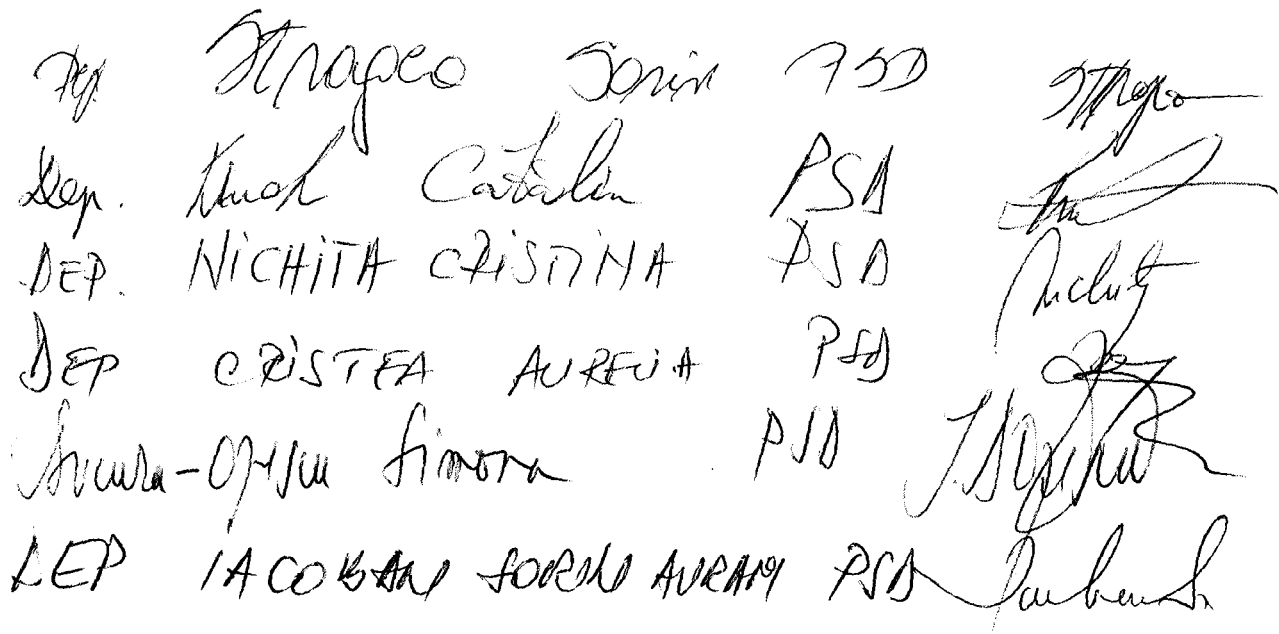 Dep. Stragea Sorin PSD
Dep. Catalin PSD
DEP. NICHITA CRISTINA PSD Nichita
DEP CRISTEA AURELIA PSD
Bucura-Oprescu Simona PSD
DEP IACOBAN SORIN AVRAM PSD